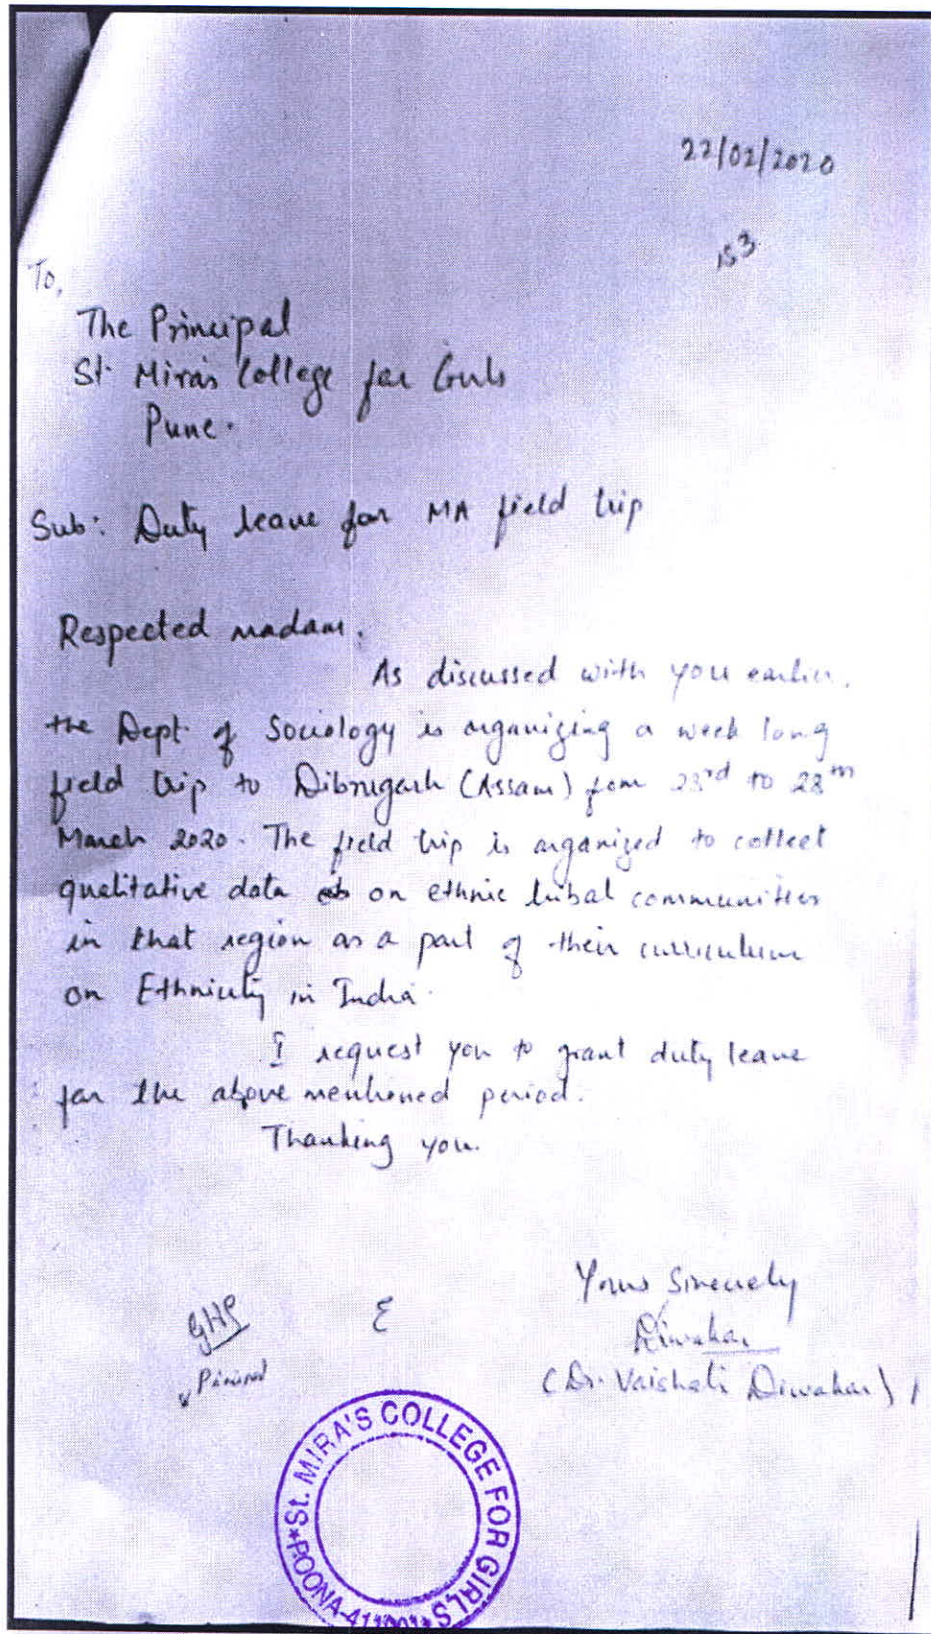 22/02/2020
153
To,
The Principal
St. Mira's College for Girls
Pune.
Sub: Duty leave for MA field trip
Respected madam,
As discussed with you earlier,
the Dept of Sociology is organizing a week long
field trip to Dibrugarh (Assam) from 23rd to 28th
March 2020. The field trip is organized to collect
qualitative data on ethnic tribal communities
in that region as a part of their curriculum
on Ethnicity in India.
I request you to grant duty leave
for the above mentioned period.
Thanking you.
Yours Sincerely
Diwakar
(Dr. Vaishali Diwakar)
*St. MIRA'S COLLEGE FOR GIRLS*
POONA-411001